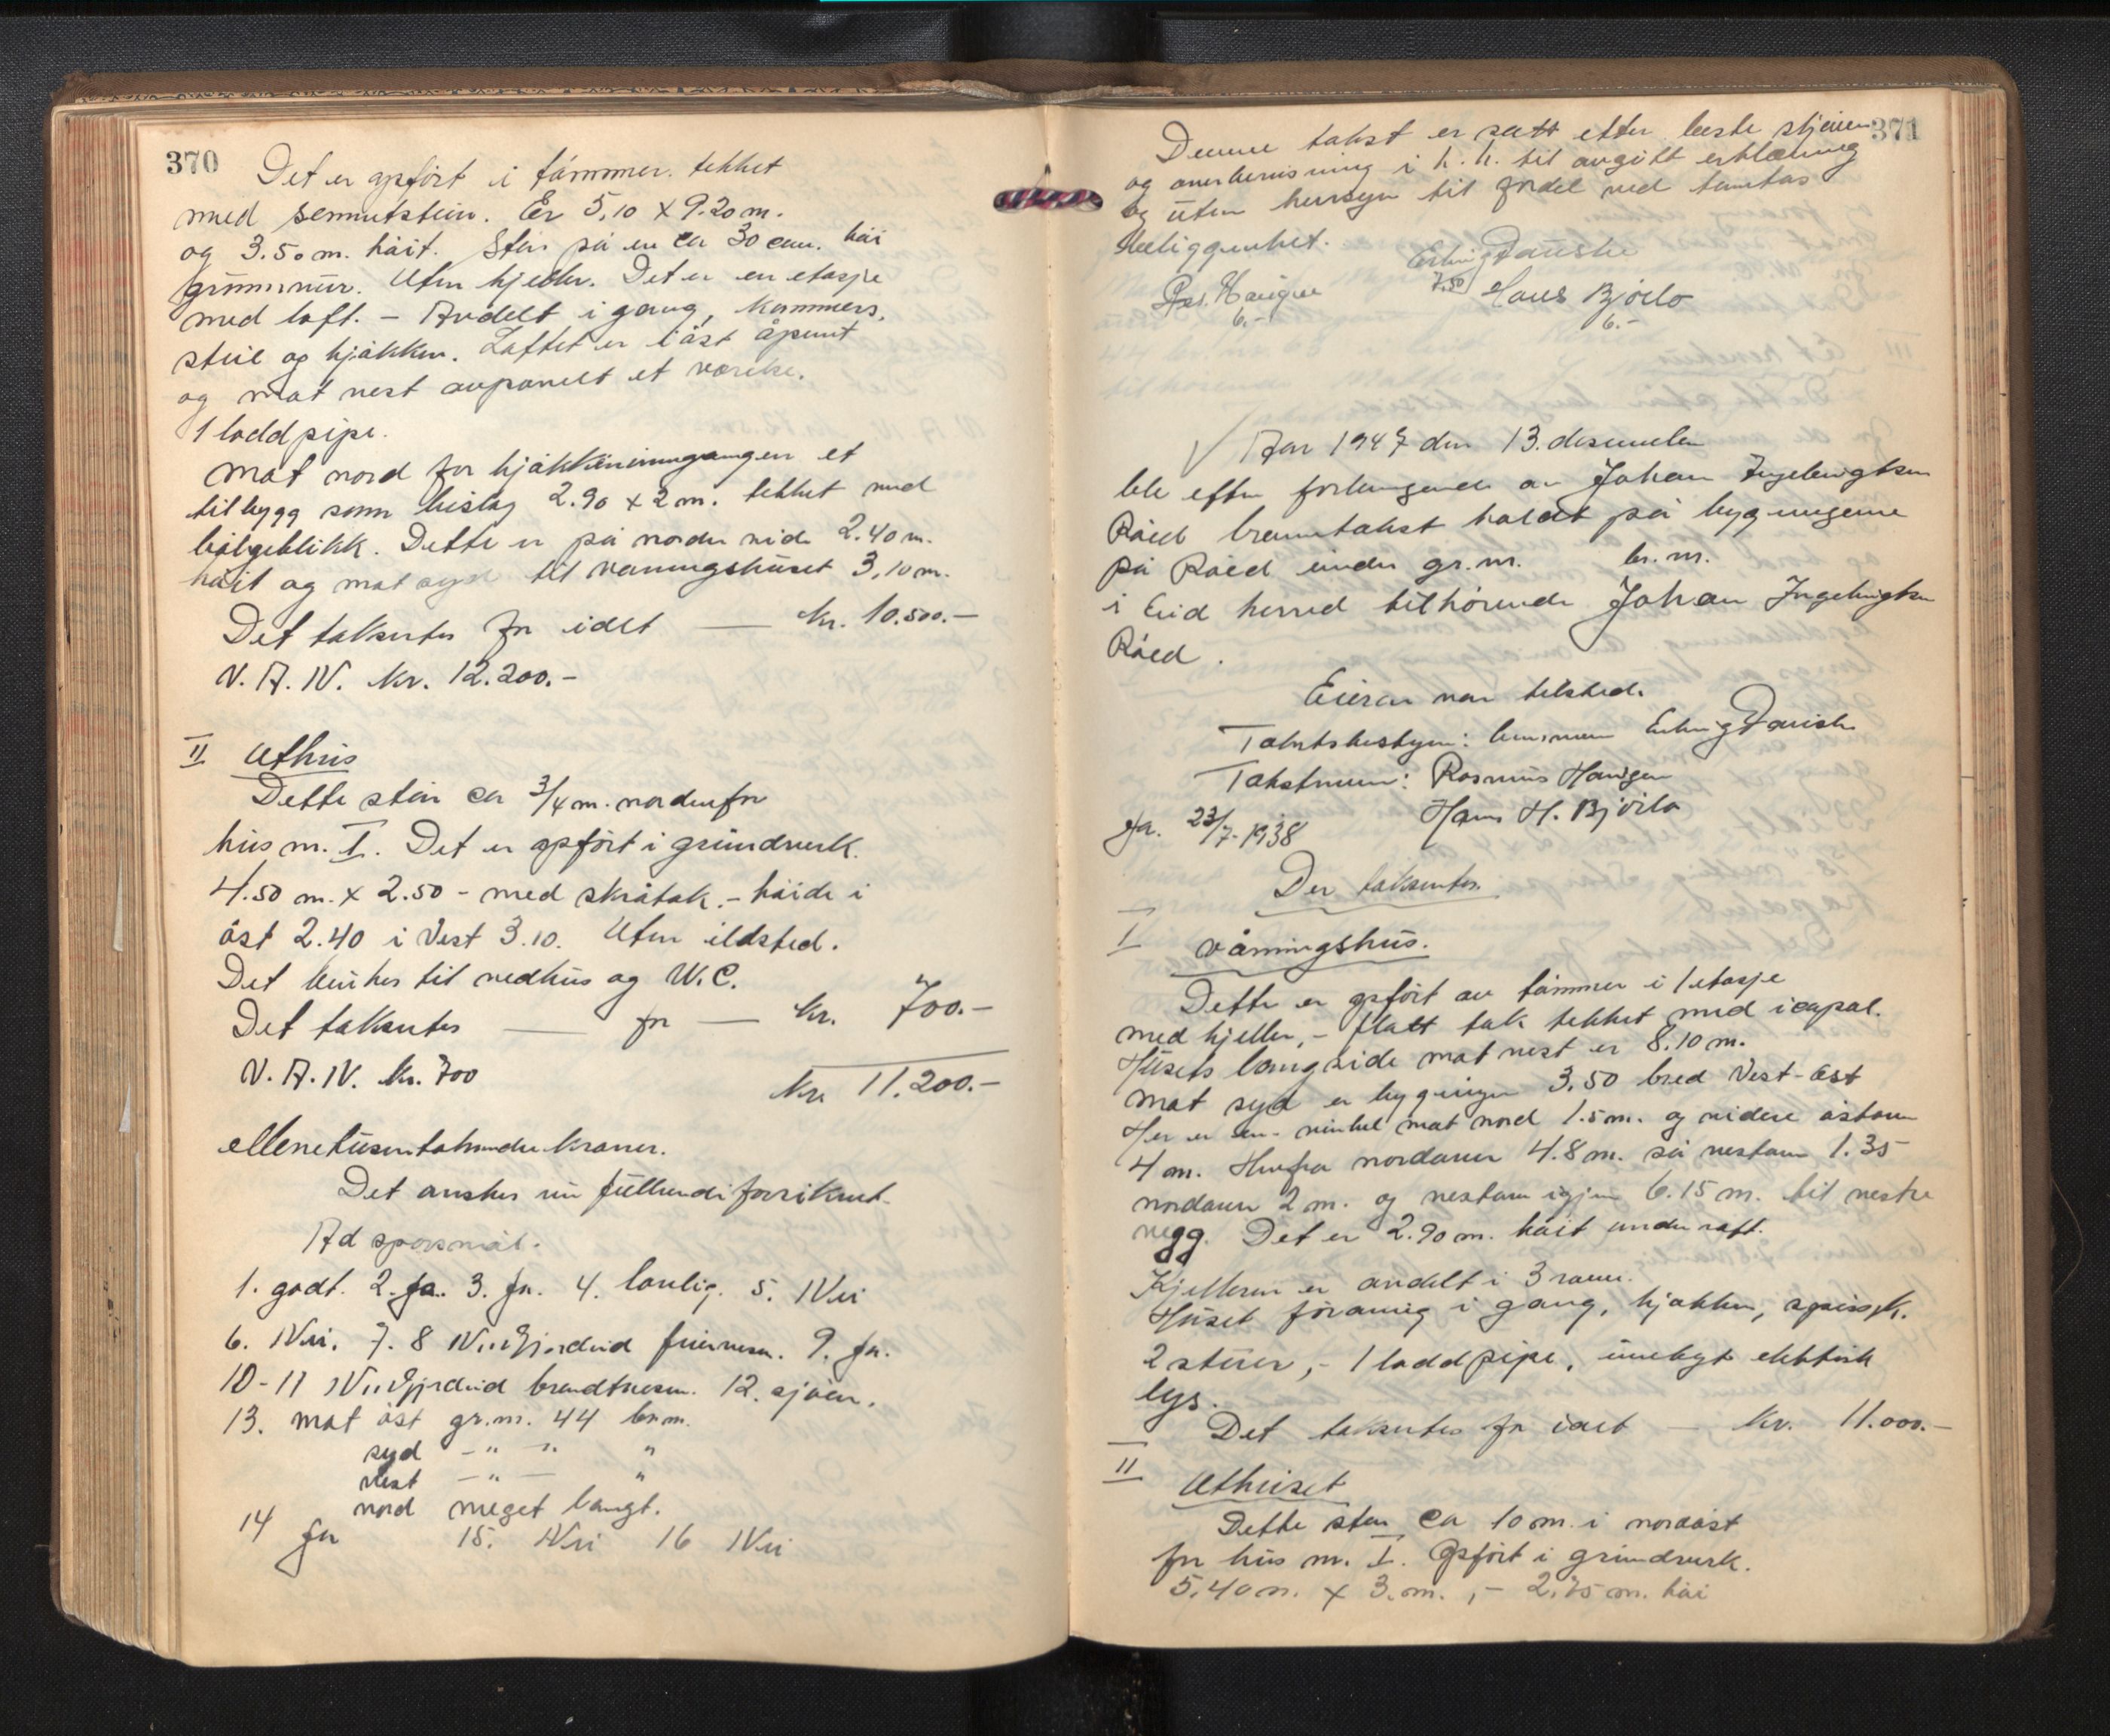 370
Det er opført i tømmer. tekket
med sementstein. Er 5,10 x 9.20 m.
og 3.50 m. høit. Står på en ca 30 cm. høi
grunnmur. Uten kjeller. Det er en etasje
med loft. – Avdelt i gang, kammers,
stue og kjøkken. Loftet er i øst åpent
og mot vest avpanelt et værelse.
1 loddpipe.
Mot nord for kjøkkeninngangen et
tilbygg som bislag 2.90 x 2 m. tekket med
bølgeblikk. Dette er på nordre side 2.40 m.
høit og mot syd til våningshuset 3,10 m.
Det takseres for idet — kr. 10.500.–
V. A. N. kr. 12.200.–
II Uthus
Dette står ca 3/4 m. norden for
hus nr. I. Det er opført i grindverk.
4.50 m. x 2.50 – med skråtak. – høide i
øst 2.40 i Vest 3.10. Uten ildsted.
Det brukes til vedhus og W.C.
Det takseres — for — kr. 700.–
V. A. N. kr. 700
kr. 11.200.–
ellevetusentohundre kroner.
Det ønskes nu fullverdiforsikret.
Ad spørsmål.
1. godt. 2. ja. 3. ja. 4. lovlig. 5. Nei
6. Nei. 7. 8 Nordfjordeid feiervesen. 9. ja.
10-11 Nordfjordeid brandvesen. 12. sjøen.
13. mot øst gr.nr. 44 br.nr.
syd – " – " "
vest – " – "
nord meget langt.
14 ja 15. Nei 16 Nei
371
Denne takst er satt efter beste skjønn
og overbevisning i h. h. til avgitt erklæring
og uten hensyn til fordel ved tomtas
beliggenhet.
Erling Dauske
7,50
Ras. Haugen Hans Bjørlo
6.– 6.–
√ Aar 1947 den 13. desember
ble efter forlangende av Johan Ingebrigtsen
Råed branntakst holdt på bygningene
på Råed under gr.nr. br.nr.
i Eid herred tilhørende Johan Ingebrigtsen
Råed.
Eieren var tilstede.
Takstbestyrer: lensmann Erling Dauske
Takstmenn: Rasmus Haugen
Hans H. Bjørlo
fra. 23/7-1938
Der takseres.
I Våningshus.
Dette er opført av tømmer i 1 etasje
med kjeller, – flatt tak tekket med icopal.
Husets langside mot vest er 8.10 m.
mot syd er bygningen 3.50 bred Vest-Øst
Her er en vinkel mot nord 1.5 m. og videre østover
4 m. Herfra nordover 4.8 m. så vestover 1.35
nordover 2 m. og vestover igjen 6.15 m. til vestre
vegg. Det er 2.90 m. høit under raft.
Kjelleren er avdelt i 3 rom.
Huset forøvrig i gang, kjøkken, spissk.
2 stuer, – 1 loddpipe, innlagt elektrisk
lys.
Det takseres for idet — kr. 11.000.–
II Uthuset
Dette står ca 10 m. i nordøst
for hus nr. I. Opført i grindverk.
5,40 m. x 3. m., – 2,75 m. høi